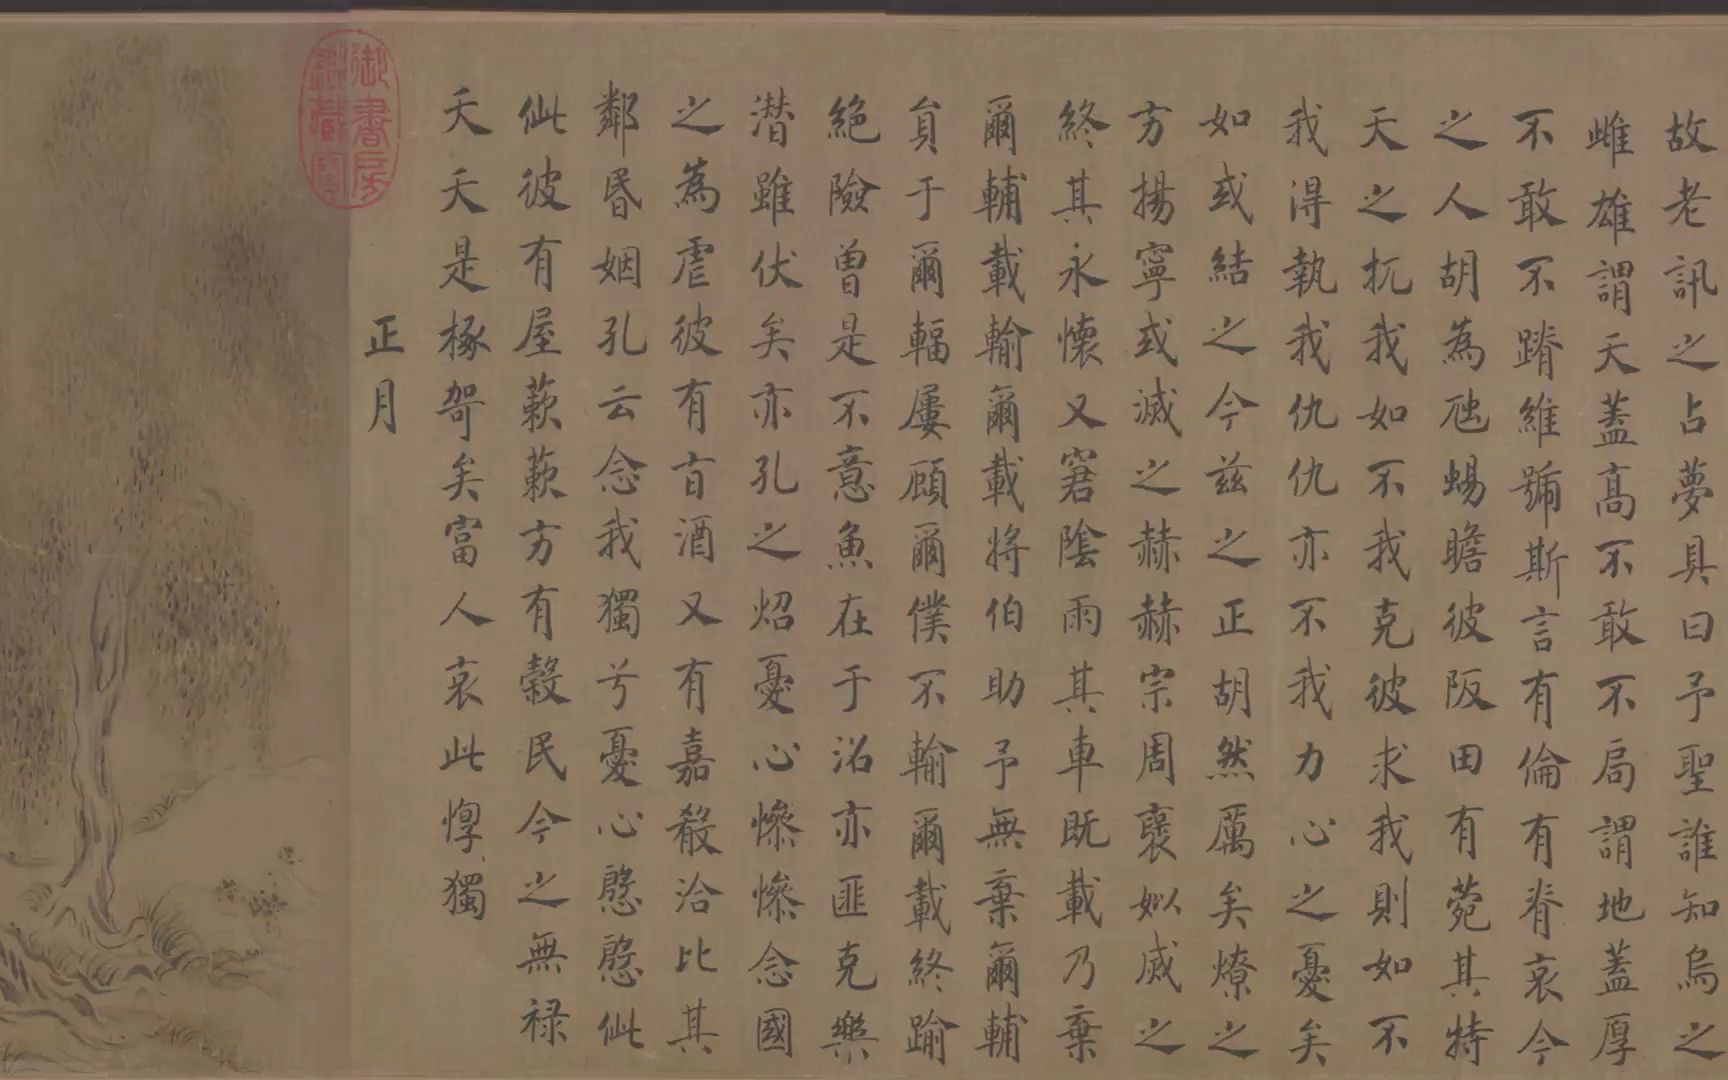 故老訊之占夢具曰予聖誰知烏之
雌雄謂天蓋髙不敢不局謂地蓋厚
不敢不蹐維號斯言有倫有脊哀今
之人胡為虺蜴瞻彼阪田有菀其特
天之扤我如不我克彼求我則如不
我得執我仇仇亦不我力心之憂矣
如或結之今兹之正胡然厲矣燎之
方揚寧或滅之赫赫宗周襃姒烕之
終其永懷又窘陰雨其車既載乃棄
爾輔載輸爾載將伯助予無棄爾輔
員于爾輻屢顧爾僕不輸爾載終踰
絶險曾是不意魚在于沼亦匪克樂
潜雖伏矣亦孔之炤憂心慘慘念國
之為虐彼有旨酒又有嘉殽洽比其
鄰昏姻孔云念我獨兮憂心慇慇佌
佌彼有屋蔌蔌方有榖民今之無禄
夭夭是椓哿矣富人哀此惸獨
正月
御書房鑑藏寶